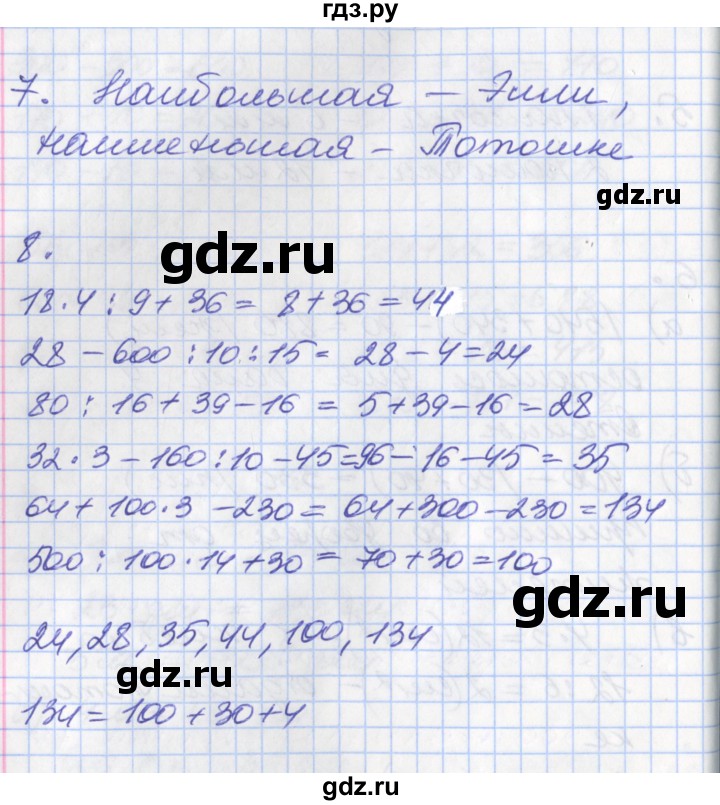 гдз.ру
7. Наибольшая – Элли,
наименьшая – Тотошке
gdz.ru
gdz.ru
8.
18·4:9+36= 8+36=44
28-600:10:15= 28-4=24
80:16+39-16=5+39-16=28
32·3-160:10-45=96-16-45=35
64+100·3-230=64+300-230=134
500:100·14+30=70+30=100
gdz.ru
24, 28, 35, 44, 100, 134
gdz.ru
134=100+30+4
gdz.ru